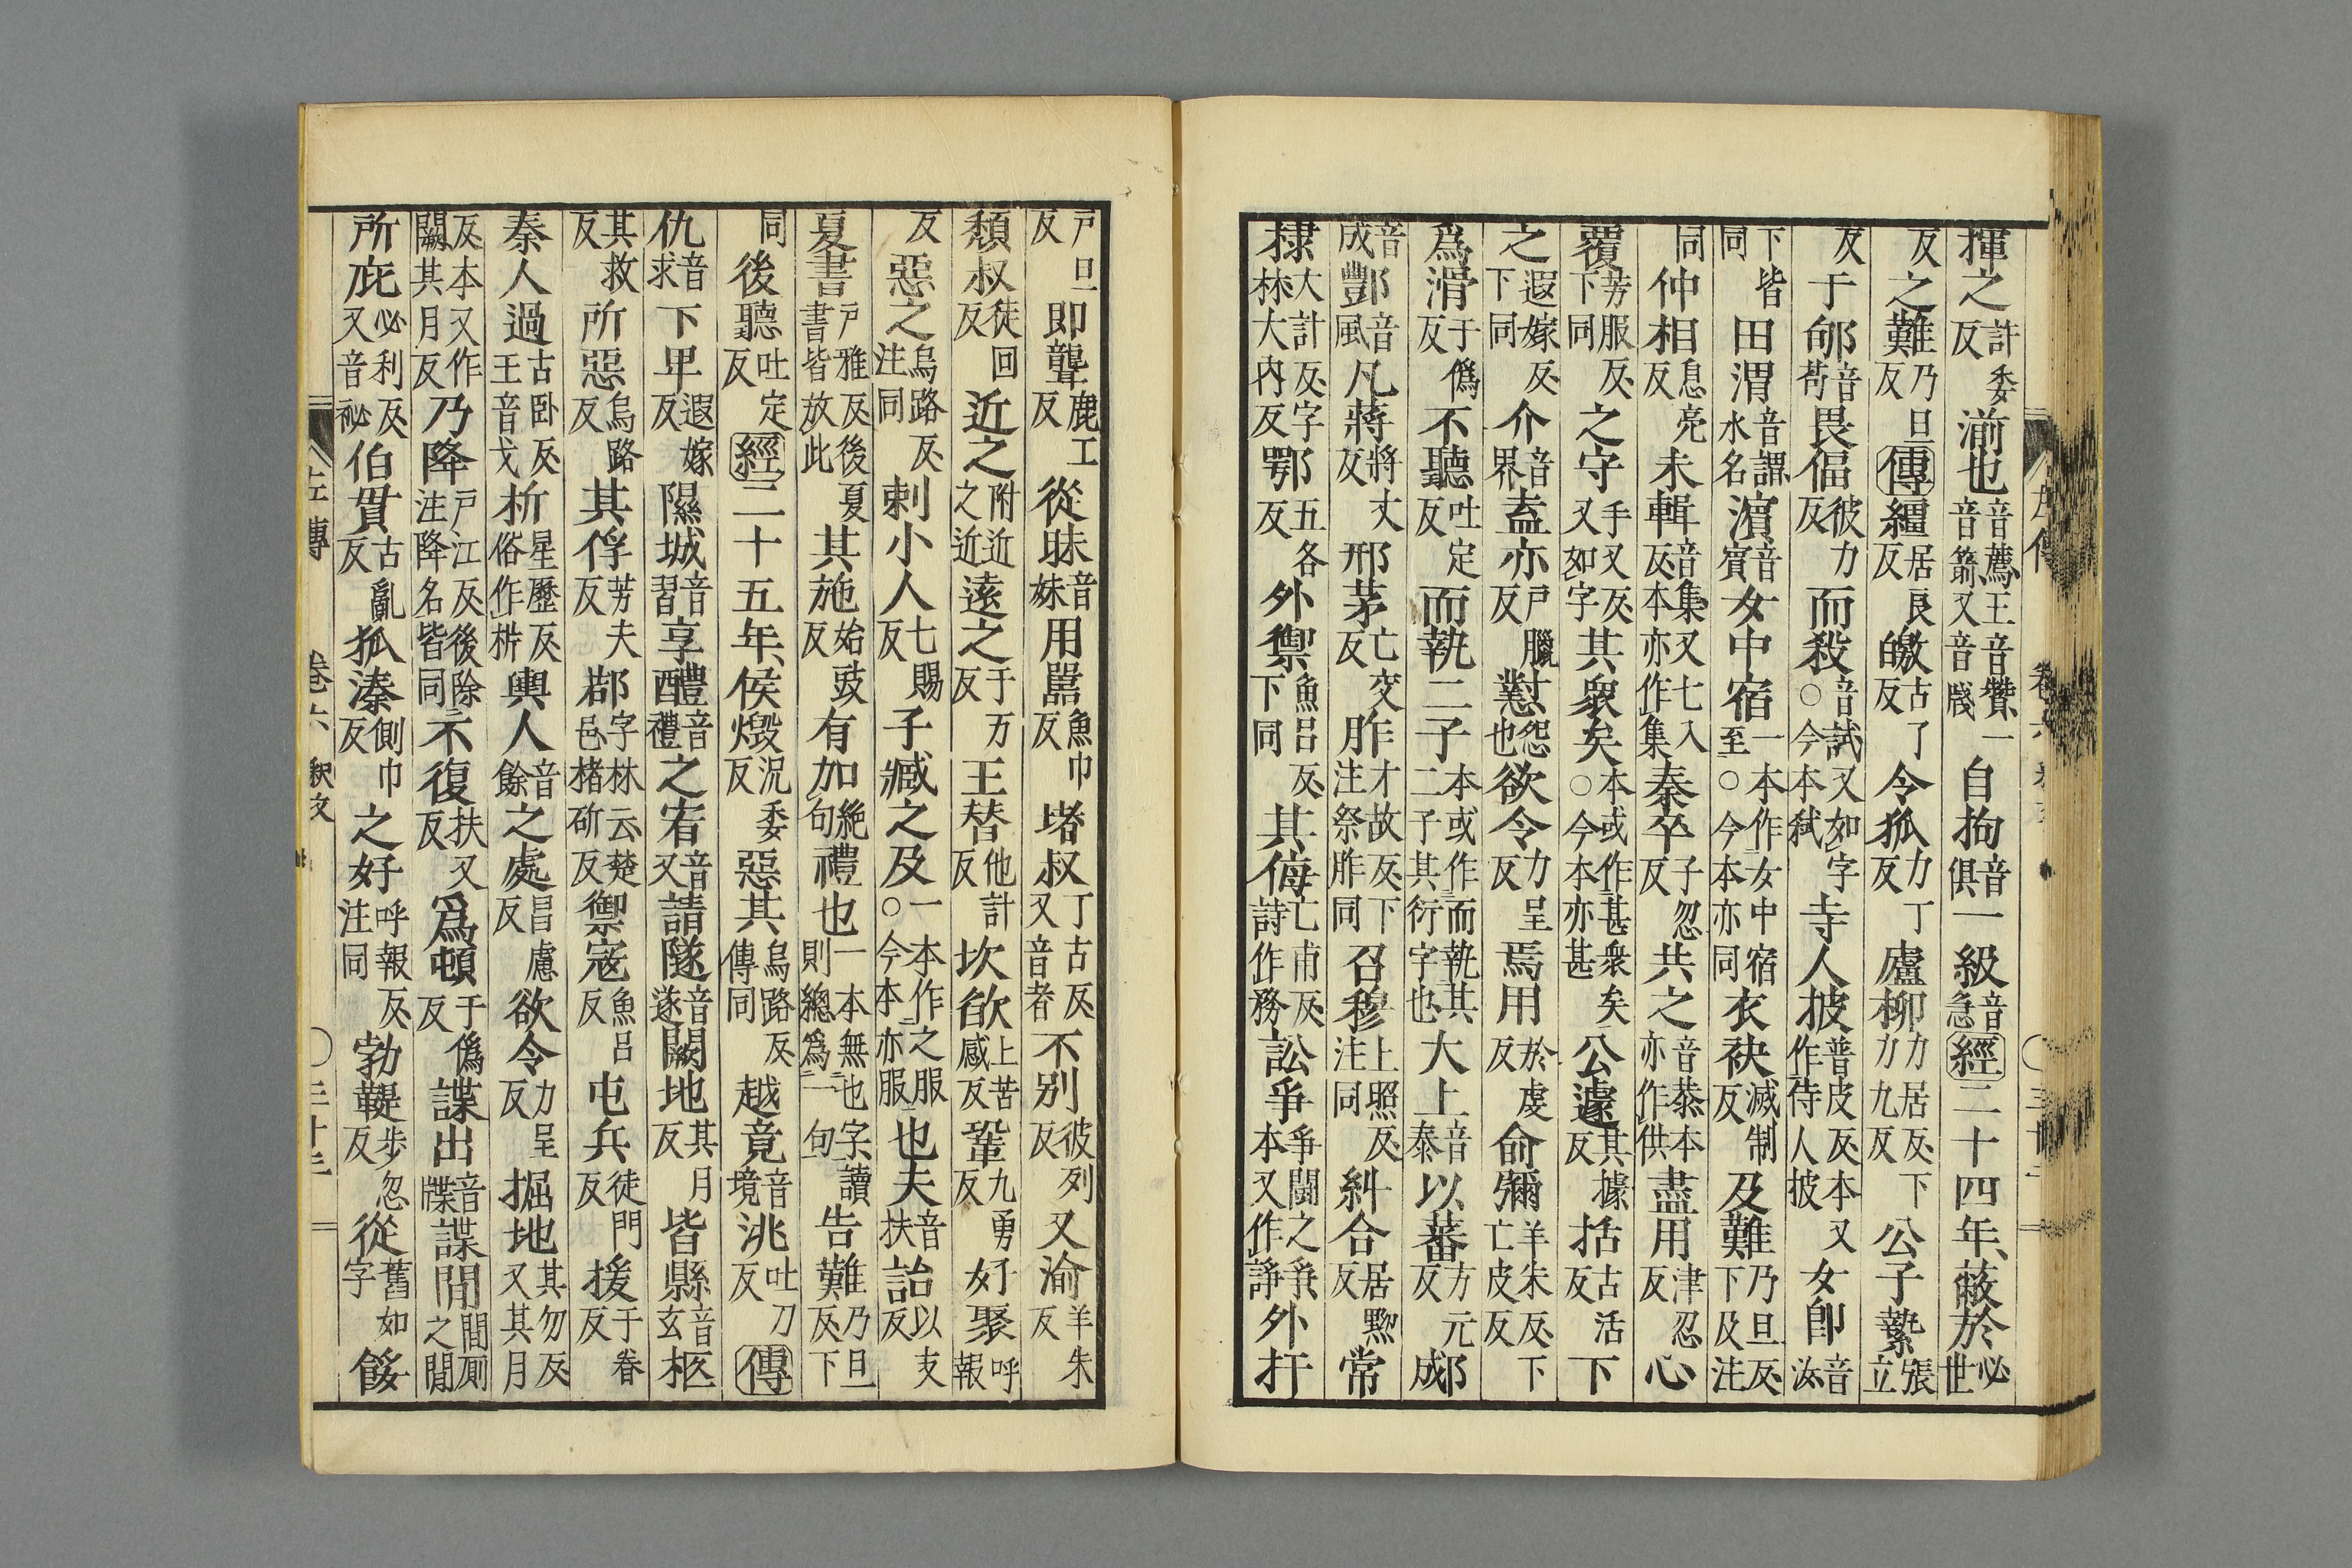 揮之許委反湔也音薦王音贊一音箭又音牋自拘音俱一級音急經二十四年蔽於必世
反之難乃旦反傳繮居良反皦古了反令狐力丁反廬柳力居反下力九反公子縶張立
反于郇音荀畏偪彼力反而殺音試又如字○今本弒寺人披普皮反本又作侍人披女即音汝
下皆同田渭音謂水名濵音賓女中宿一本作女中宿至○今本亦同衣袂滅制反及難乃旦反下及注
同仲相息亮反未輯音集又七入反本亦作集秦卒子忽反共之音恭本亦作供盡用津忍反心
覆芳服反下同之守手又反又如字其衆矣本或作甚衆矣○今本亦甚公遽其據反括古活反下
之遐嫁反下同介音界盍亦戶臘反懟怨也欲令力呈反焉用於虔反俞彌羊朱反下亡皮反
爲滑于僞反不聽吐定反而執二子本或作而執其二子其衍字也大上音泰以蕃方元反郕
音成酆音風凡蔣將丈反邢茅亡交反胙才故反下注祭胙同召穆上照反注同糾合居黝反常
棣大計反字林大内反鄂五各反外禦魚呂反下同其侮亡甫反詩作務訟爭爭鬪之爭本又作諍外扞
戶旦反即聾鹿工反從昧音妹用嚚魚巾反堵叔丁古反又音者不別彼列反又渝羊朱反
頹叔徒回反近之附近之近遠之于万反王替他計反坎欿上苦感反鞏九勇反好聚呼報
反惡之烏路反注同刺小人七賜反子臧之及一本作之服○今本亦服也夫音扶詒以支反
夏書戶雅反後夏書皆放此其施始豉反有加絶句禮也一本無也字讀則總爲一句告難乃旦反下
同後聽吐定反經二十五年侯燬況委反惡其烏路反傳同越竟音境洮吐刀反傳
仇音求下卑遐嫁反隰城音習享醴音禮之宥音又請隧音遂闕地其月反皆縣音玄柩
其救反所惡烏路反其俘芳夫反鄀字林云楚邑楮斫反禦寇魚呂反屯兵徒門反援于眷反
秦人過古卧反王音戈析星歷反俗作枡輿人音餘之處昌慮反欲令力呈反掘地其勿反又其月
反本又作闕其月反乃降戶江反後除注降名皆同不復扶又反爲頓于僞反諜出音牒諜間間廁之間
所庇必利反又音祕伯貫古亂反狐溱側巾反之好呼報反注同勃鞮步忽反從舊如字餒
左傳 卷六 釈文 ○三十三